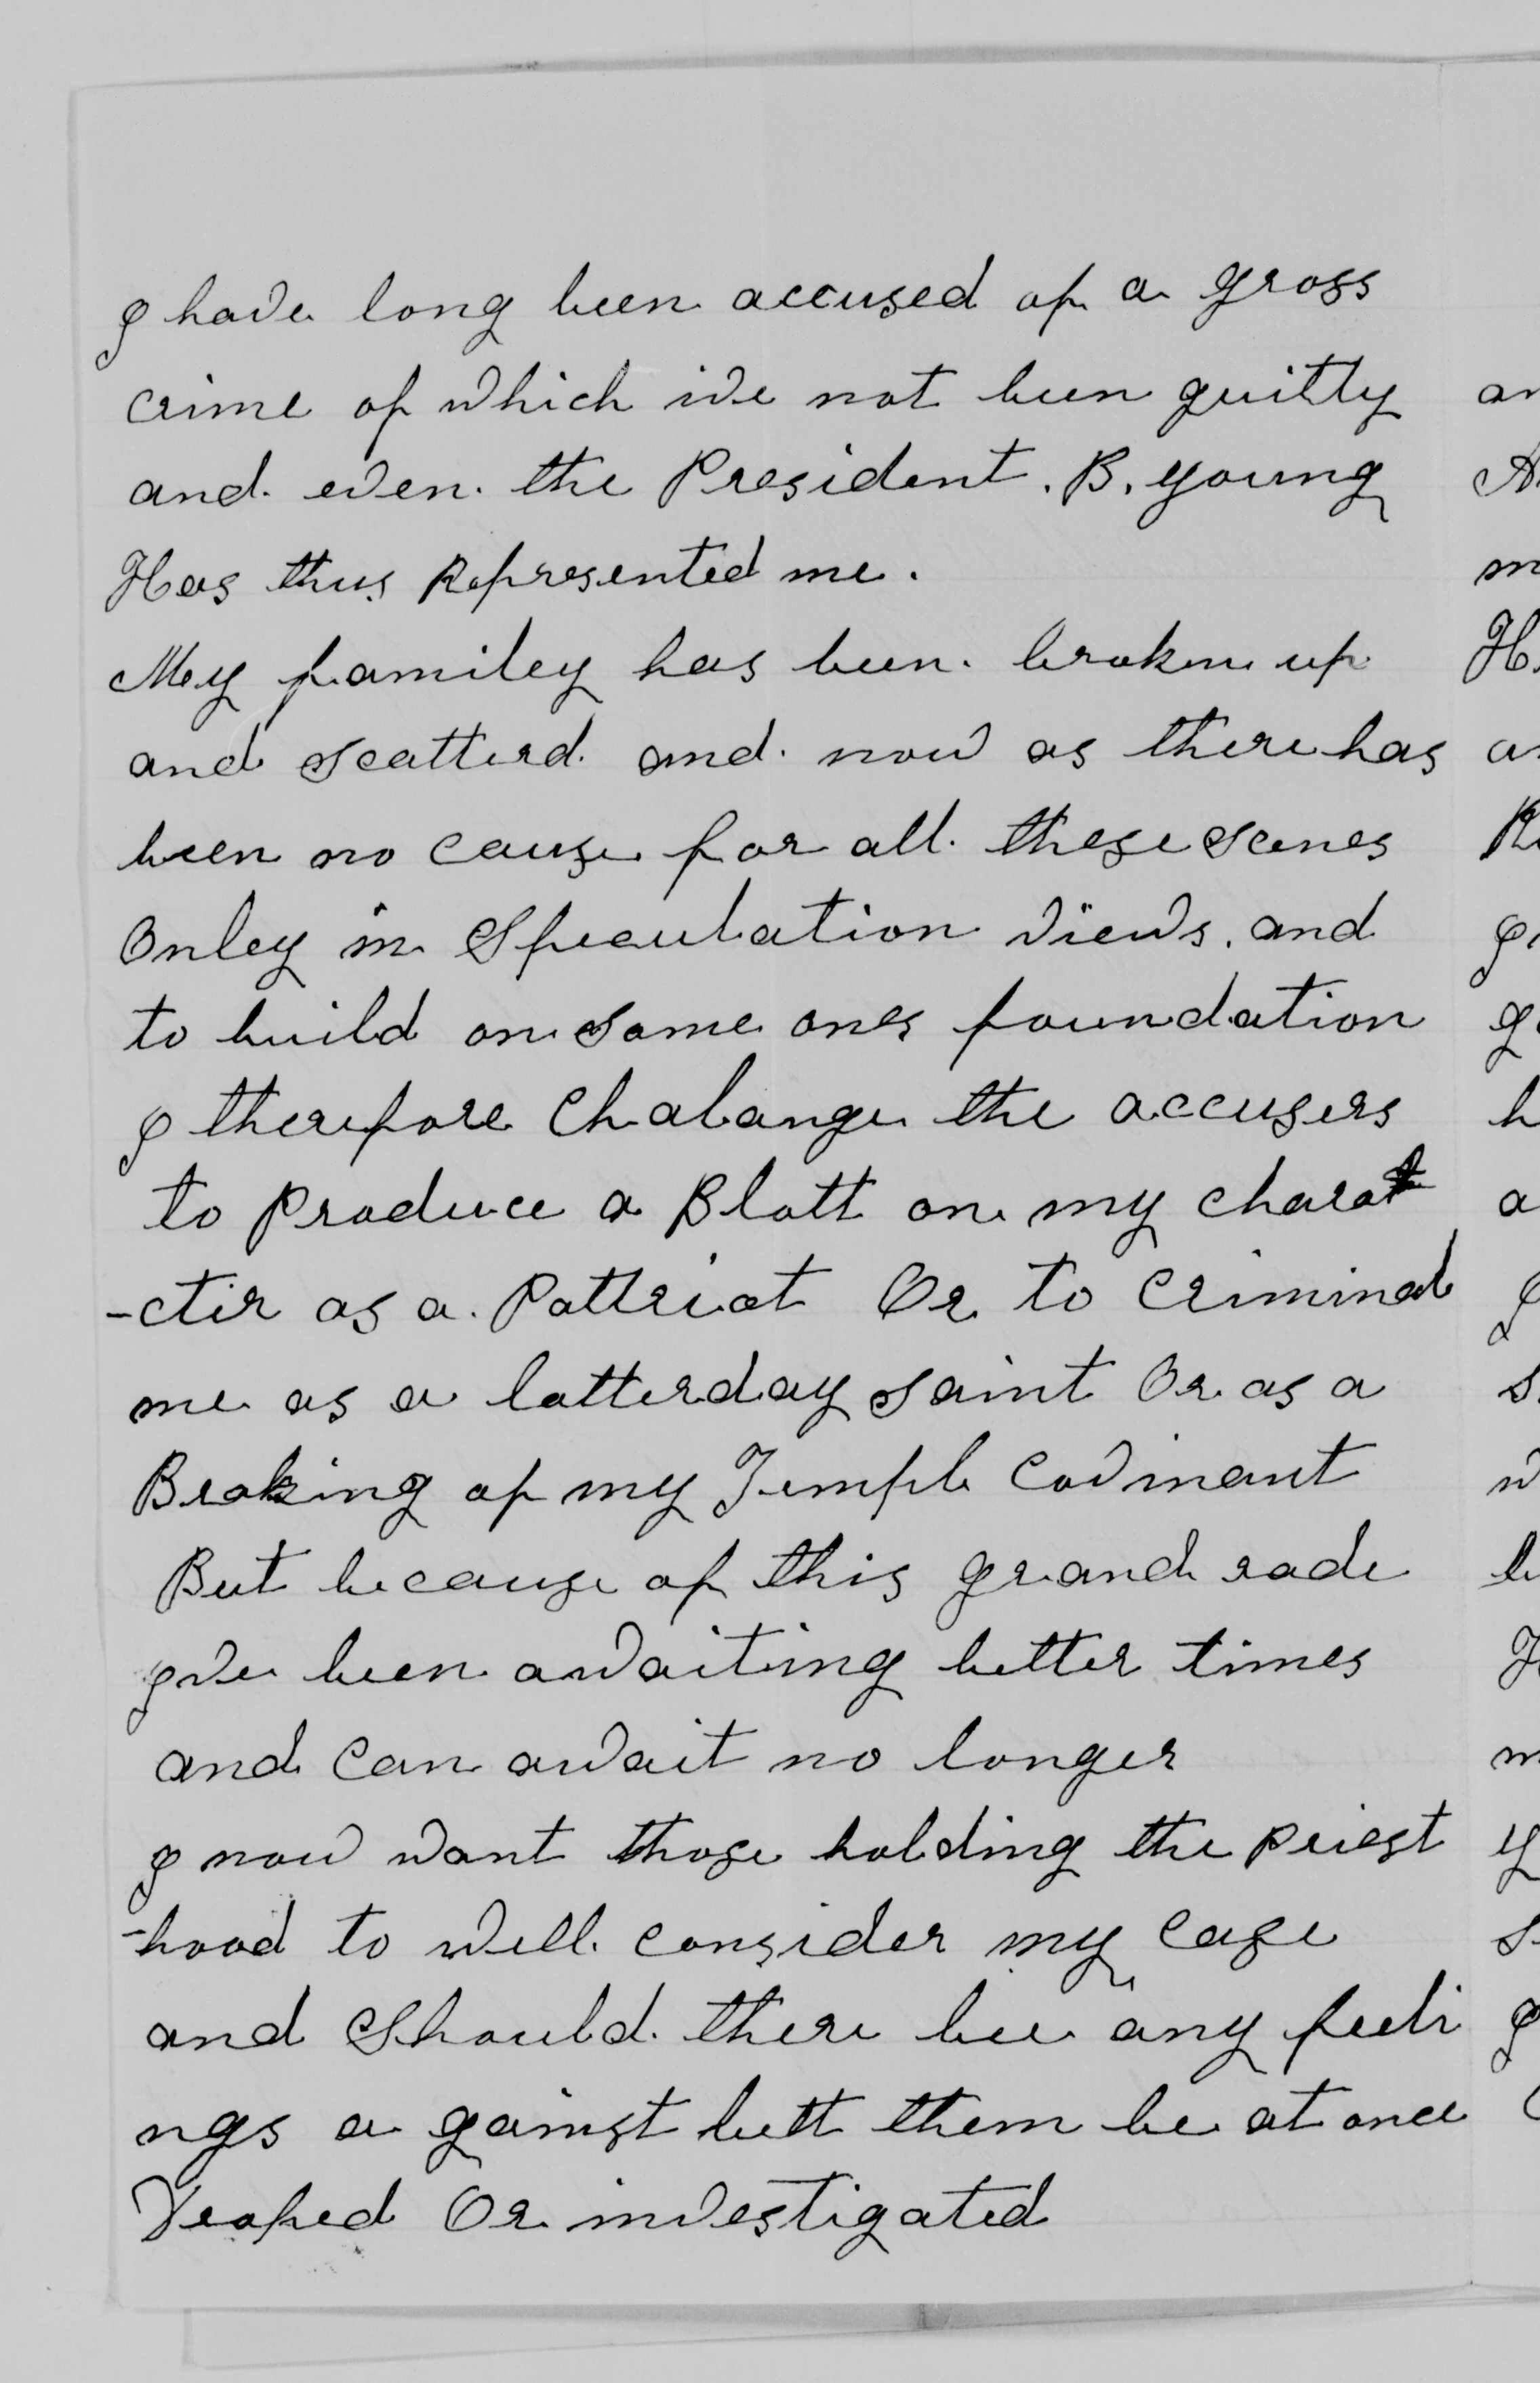 I have long been accused of a gross
crime of which ive not been guilty
and even the President. B. Young
Has thus Represented me.
My familey has been broken up
and scatterd and now as there has
been no cause for all these scenes
Onley in Speculation views. and
to build on some ones foundation
I therefore Chalange the accusers
to produce a Blott on my charat
-cter as a Pattriot Or to Criminal
me as a latterday saint Or as a
Braking of my Temple Covinant
But because of this grand rade
Ive been awaiting better times
and can await no longer
I now want those holding the priest
-hood to well consider my case
and Should there bee any feeli
ngs a gainst lett them be at once
Or investigated
an
A
m
H
a
g
h
a
s
w
b
m
y
s